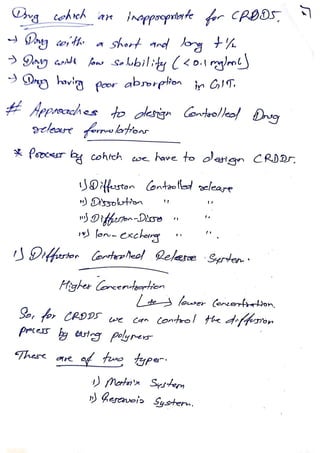 Drug which are inappropriate for CRDDS.
→ Drug with a short and long t ½
→ Drug with low solubility (<0.1 mg/mL)
→ Drug having poor absorption in GIT.
# Approaches to design Controlled Drug
release formulations
* Process by which we have to design CRDDS.
i) Diffusion Controlled release
ii) Dissolution " "
iii) Diffusion-Disso " "
iv) Ion-exchang " " .
1) Diffusion Controlled Release System.
Higher Concentration
↳ lower Concentration.
So, for CRDDS we can control the diffusion
process by using polymers
These are of two types.
i) Matrix System
ii) Reservoir System.